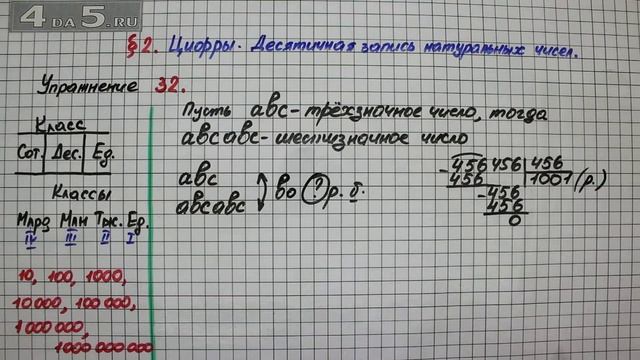 4 DA 5.RU
§2. Цифры. Десятичная запись натуральных чисел.
Упражнение 32.
Класс
Сот. Дес. Ед.
Классы
Млрд Млн Тыс. Ед.
IV III II I
10, 100, 1000,
10 000, 100 000,
1 000 000,
1 000 000 000
Пусть abc - трёхзначное число, тогда
abcabc - шестизначное число
abc
abcabc
во ? р. б.
- 456 456 456
456 1001 (р.)
- 456
456
0